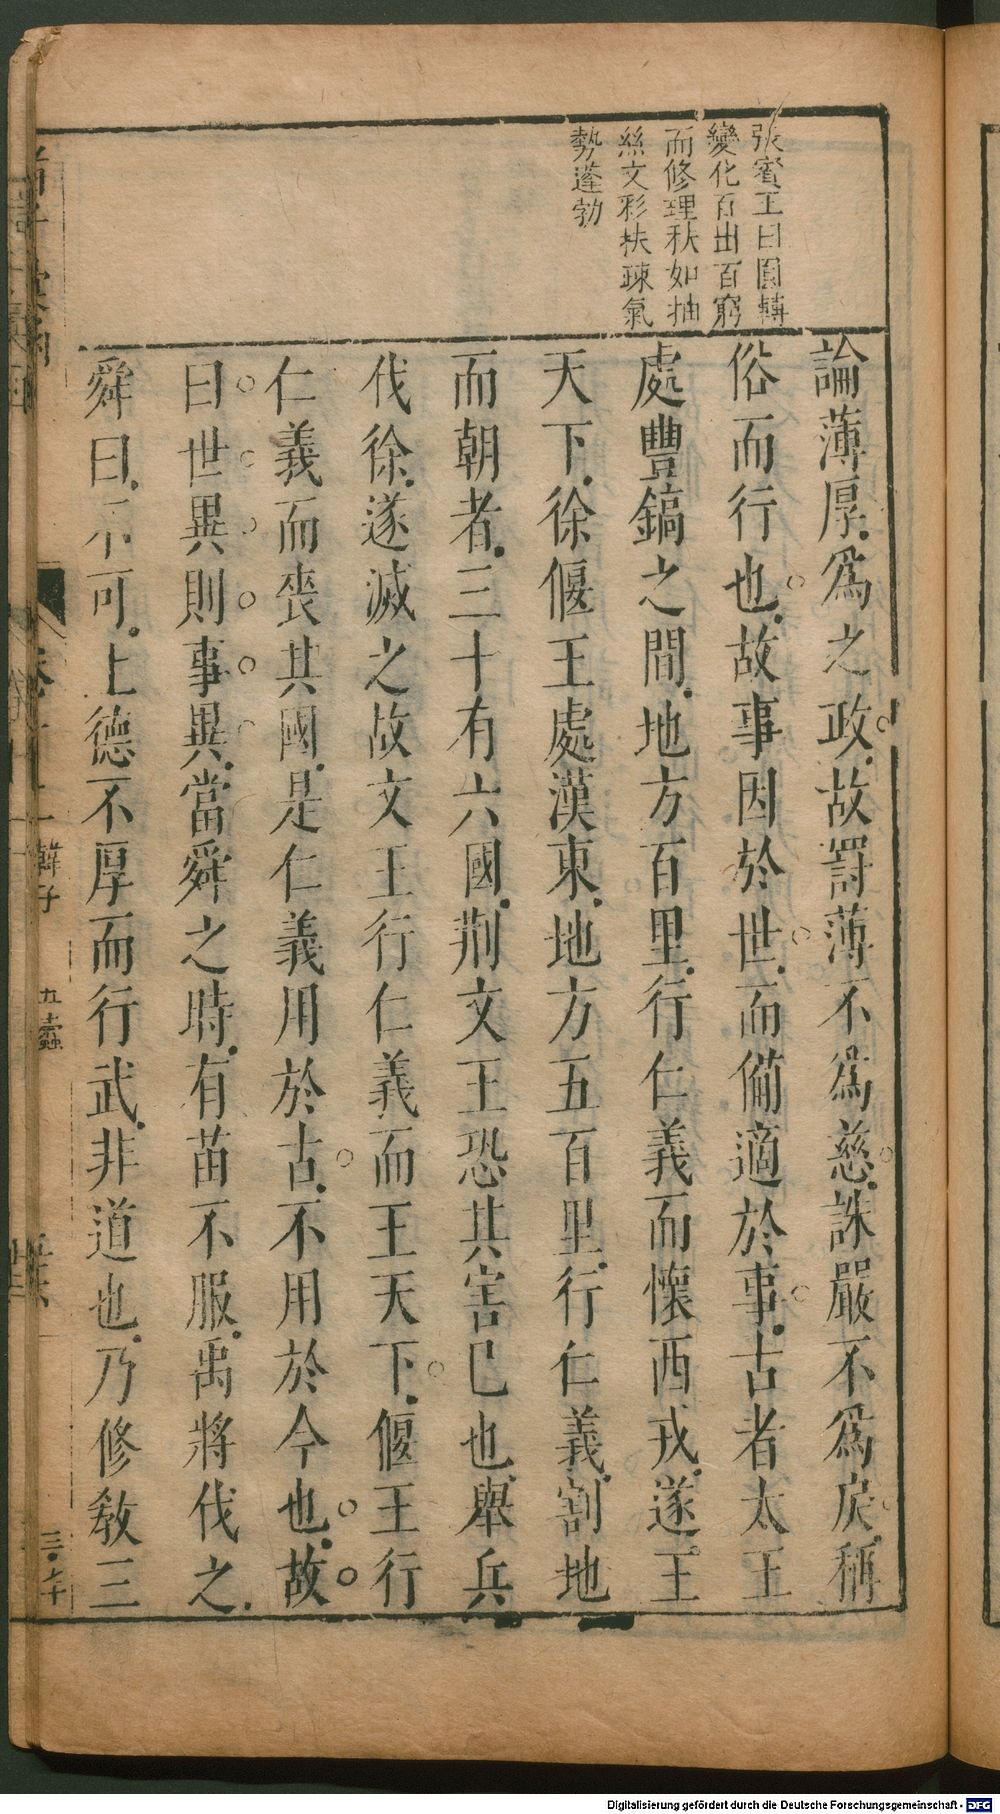 張賓王曰圓轉
變化百出百窮
而修理秩如抽
絲文彩扶疎氣
勢蓬勃
論薄厚爲之政故罰薄不爲慈誅嚴不爲戾稱
俗而行也故事因於世而備適於事古者太王
處豐鎬之間地方百里行仁義而懷西戎遂王
天下徐偃王處漢東地方五百里行仁義割地
而朝者三十有六國荆文王恐其害已也舉兵
伐徐遂滅之故文王行仁義而王天下偃王行
仁義而喪其國是仁義用於古不用於今也故
曰世異則事異當舜之時有苗不服禹將伐之
舜曰不可上德不厚而行武非道也乃修敎三
韓子
五蠹
Digitalisierung gefördert durch die Deutsche Forschungsgemeinschaft - DFG